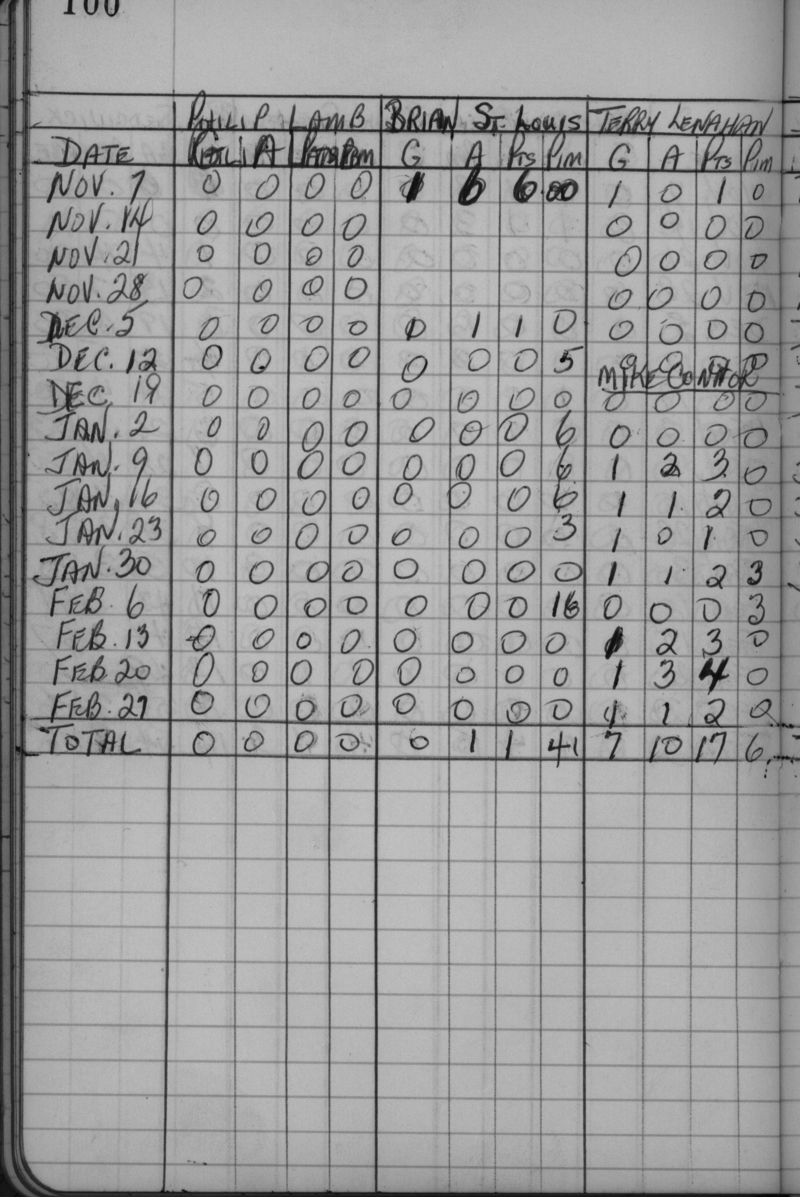 100
PHILIP LAMB BRIAN ST. LOUIS TERRY LENAHAN
DATE A G A PTS PIM G A PTS PIM
NOV. 7 0 0 0 0 1 0 1 0
NOV. 14 0 0 0 0 0 0 0 0
NOV. 21 0 0 0 0 0 0 0 0
NOV. 28 0 0 0 0 0 0 0 0
DEC. 5 0 0 0 0 0 1 1 0 0 0 0 0
DEC. 12 0 0 0 0 0 0 0 5 0 0 0 0
MIKE CONNOR
DEC. 19 0 0 0 0 0 0 0 0 0 0 0 0
JAN. 2 0 0 0 0 0 0 0 6 0 0 0 0
JAN. 9 0 0 0 0 0 0 0 6 1 2 3 0
JAN. 16 0 0 0 0 0 0 0 6 1 1 2 0
JAN. 23 0 0 0 0 0 0 0 3 1 0 1 0
JAN. 30 0 0 0 0 0 0 0 0 1 1 2 3
FEB. 6 0 0 0 0 0 0 0 16 0 0 0 3
FEB. 13 0 0 0 0 0 0 0 0 1 2 3 0
FEB. 20 0 0 0 0 0 0 0 0 1 3 4 0
FEB. 27 0 0 0 0 0 0 0 0 1 1 2 0
TOTAL 0 0 0 0 0 1 1 41 7 10 17 6